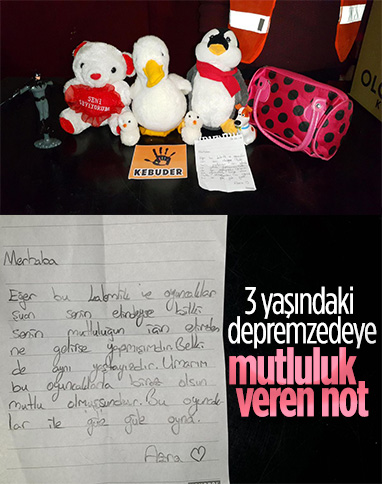 SENİ
SEVİYORUM
KEBUDER
OL
Merhaba
Eğer bu kalemlik ve oyuncaklar
şuan senin elindeyse bilki
senin mutluluğun için elimden
ne gelirse yapmışımdır. Belki
de aynı yaştayızdır. Umarım
bu oyuncaklarla biraz olsun
mutlu olmuşsundur. Bu oyuncak
lar ile güle güle oyna.
3 yaşındaki
depremzedeye
mutluluk
veren not